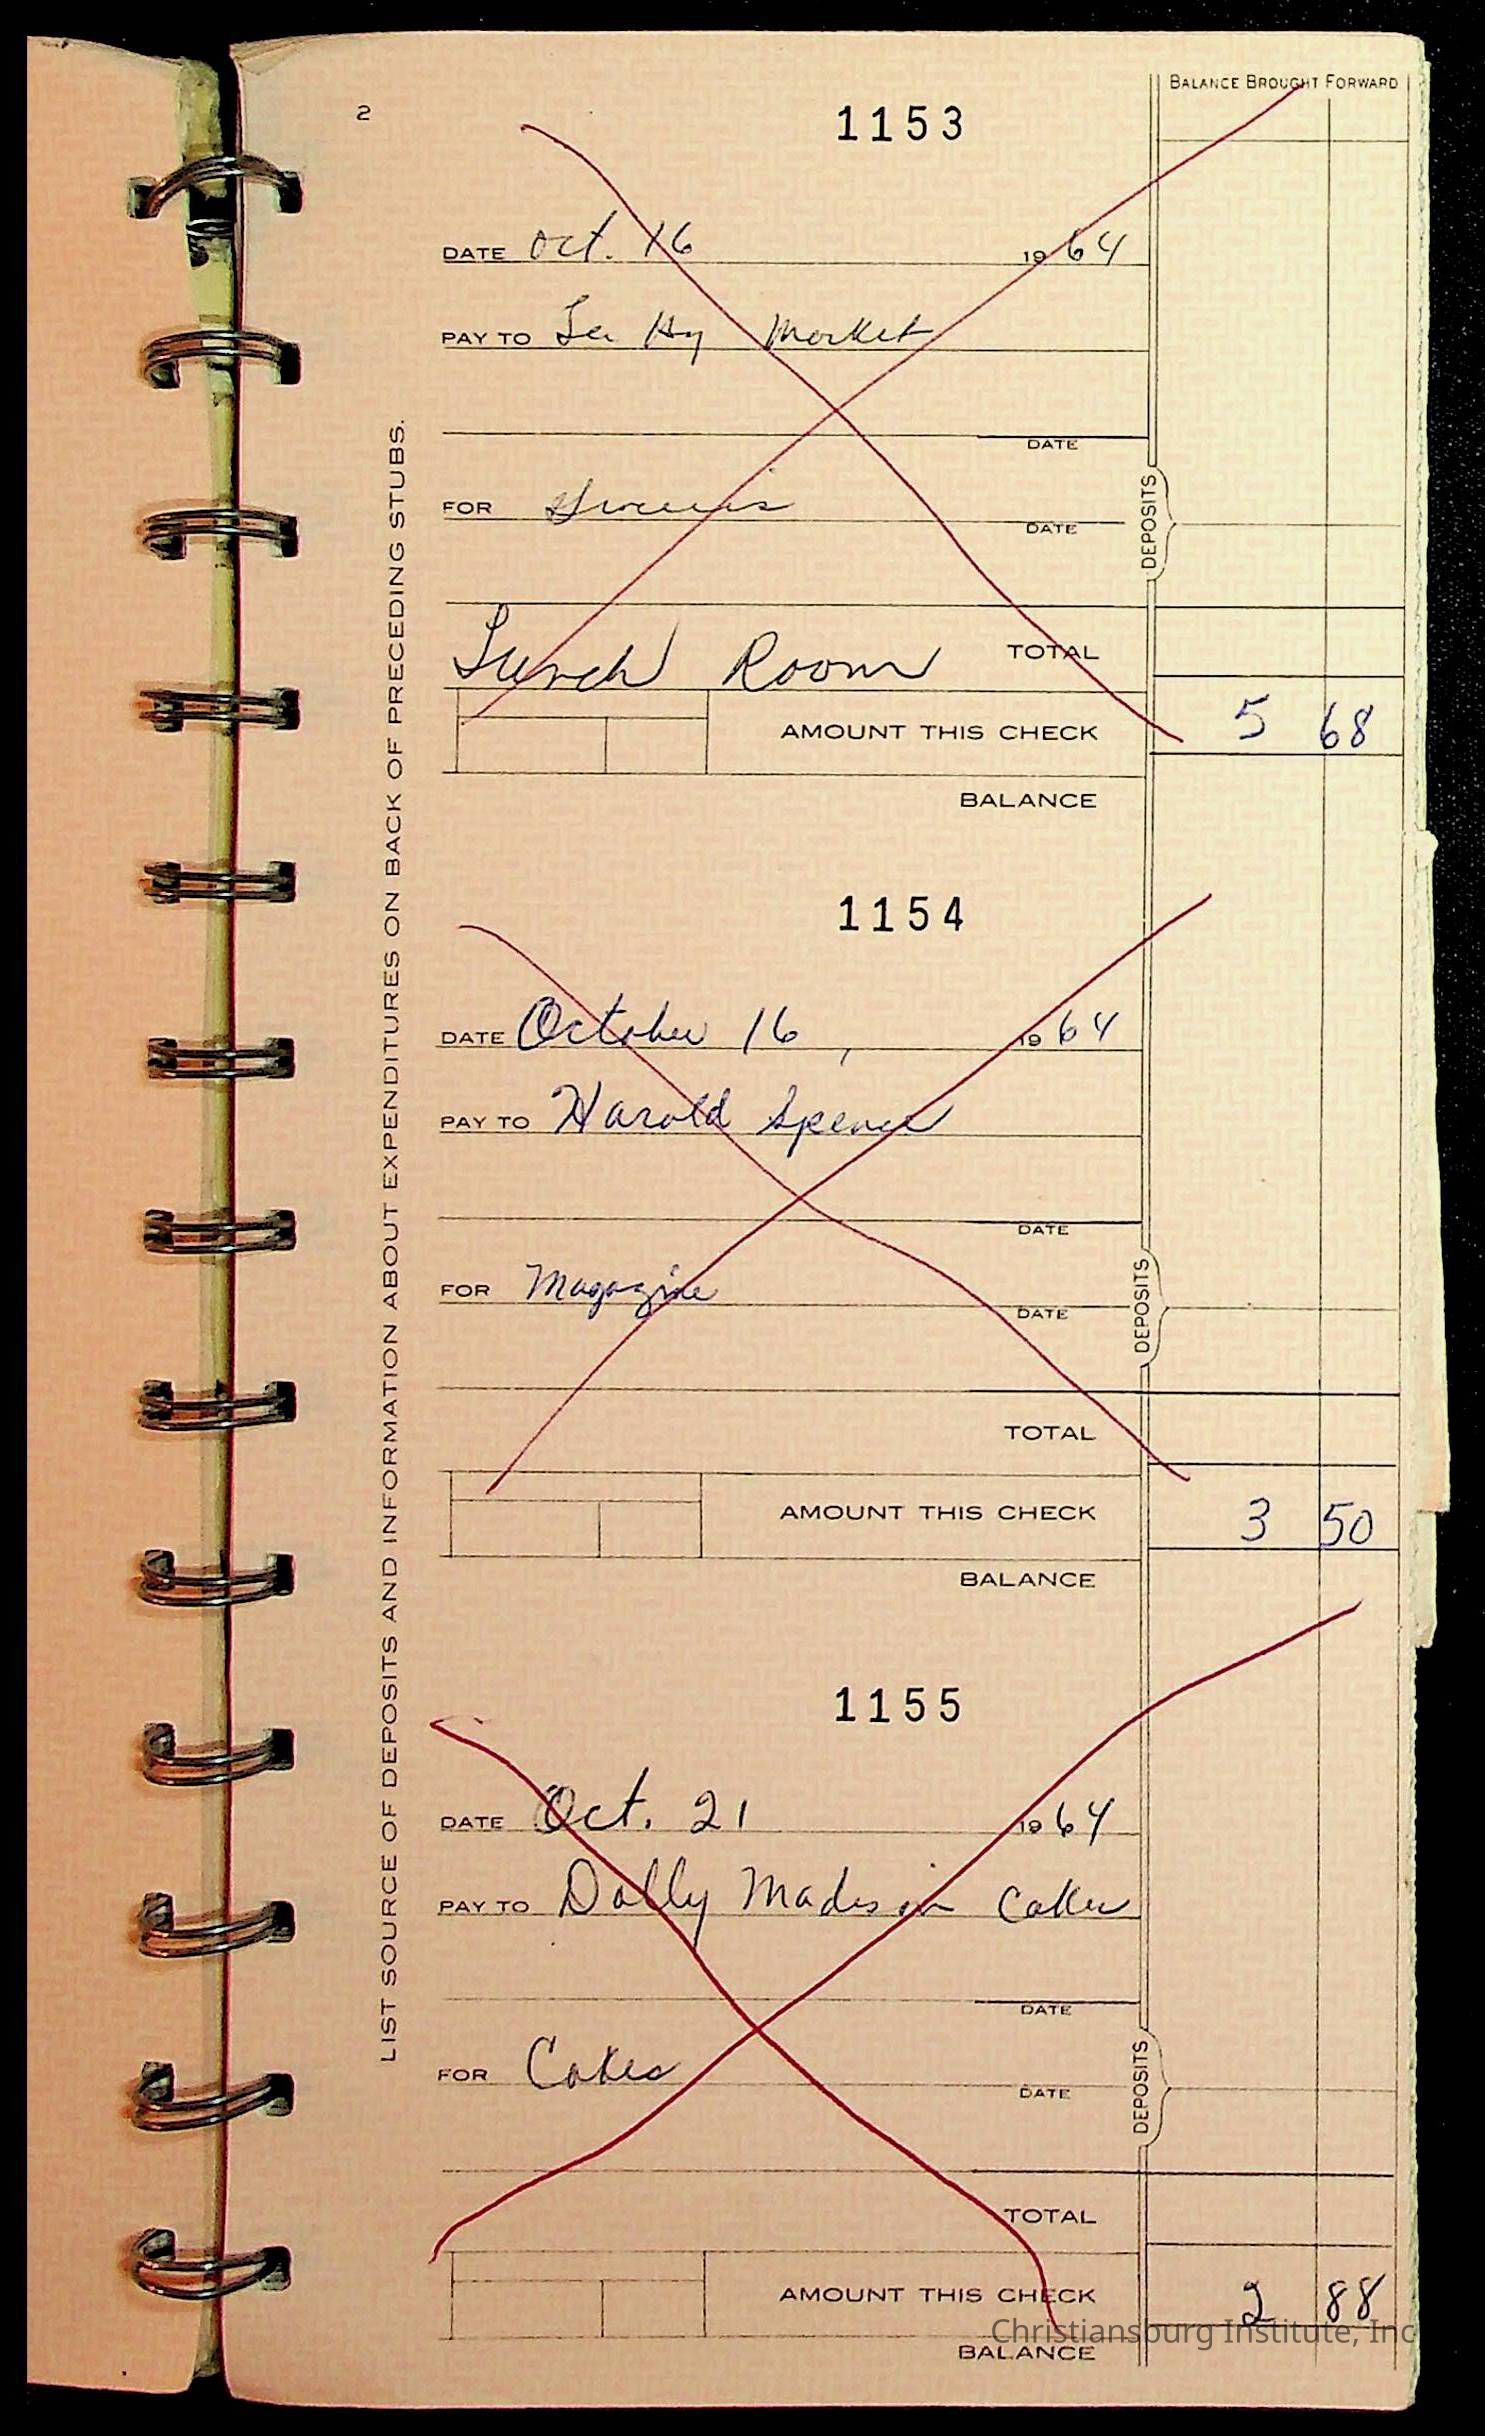 2
1153
BALANCE BROUGHT FORWARD
DATE Oct. 16 1964
PAY TO Lee Hy Market
DATE
FOR Groceries
DATE
DEPOSITS
Lunch Room TOTAL
AMOUNT THIS CHECK 5 68
BALANCE
1154
DATE October 16, 1964
PAY TO Harold Spencer
DATE
FOR Magazine
DATE
DEPOSITS
TOTAL
AMOUNT THIS CHECK 3 50
BALANCE
1155
DATE Oct. 21 1964
PAY TO Dolly Madison Cakes
DATE
FOR Cakes
DATE
DEPOSITS
TOTAL
AMOUNT THIS CHECK 2 88
BALANCE
LIST SOURCE OF DEPOSITS AND INFORMATION ABOUT EXPENDITURES ON BACK OF PRECEDING STUBS.
Christiansburg Institute, Inc